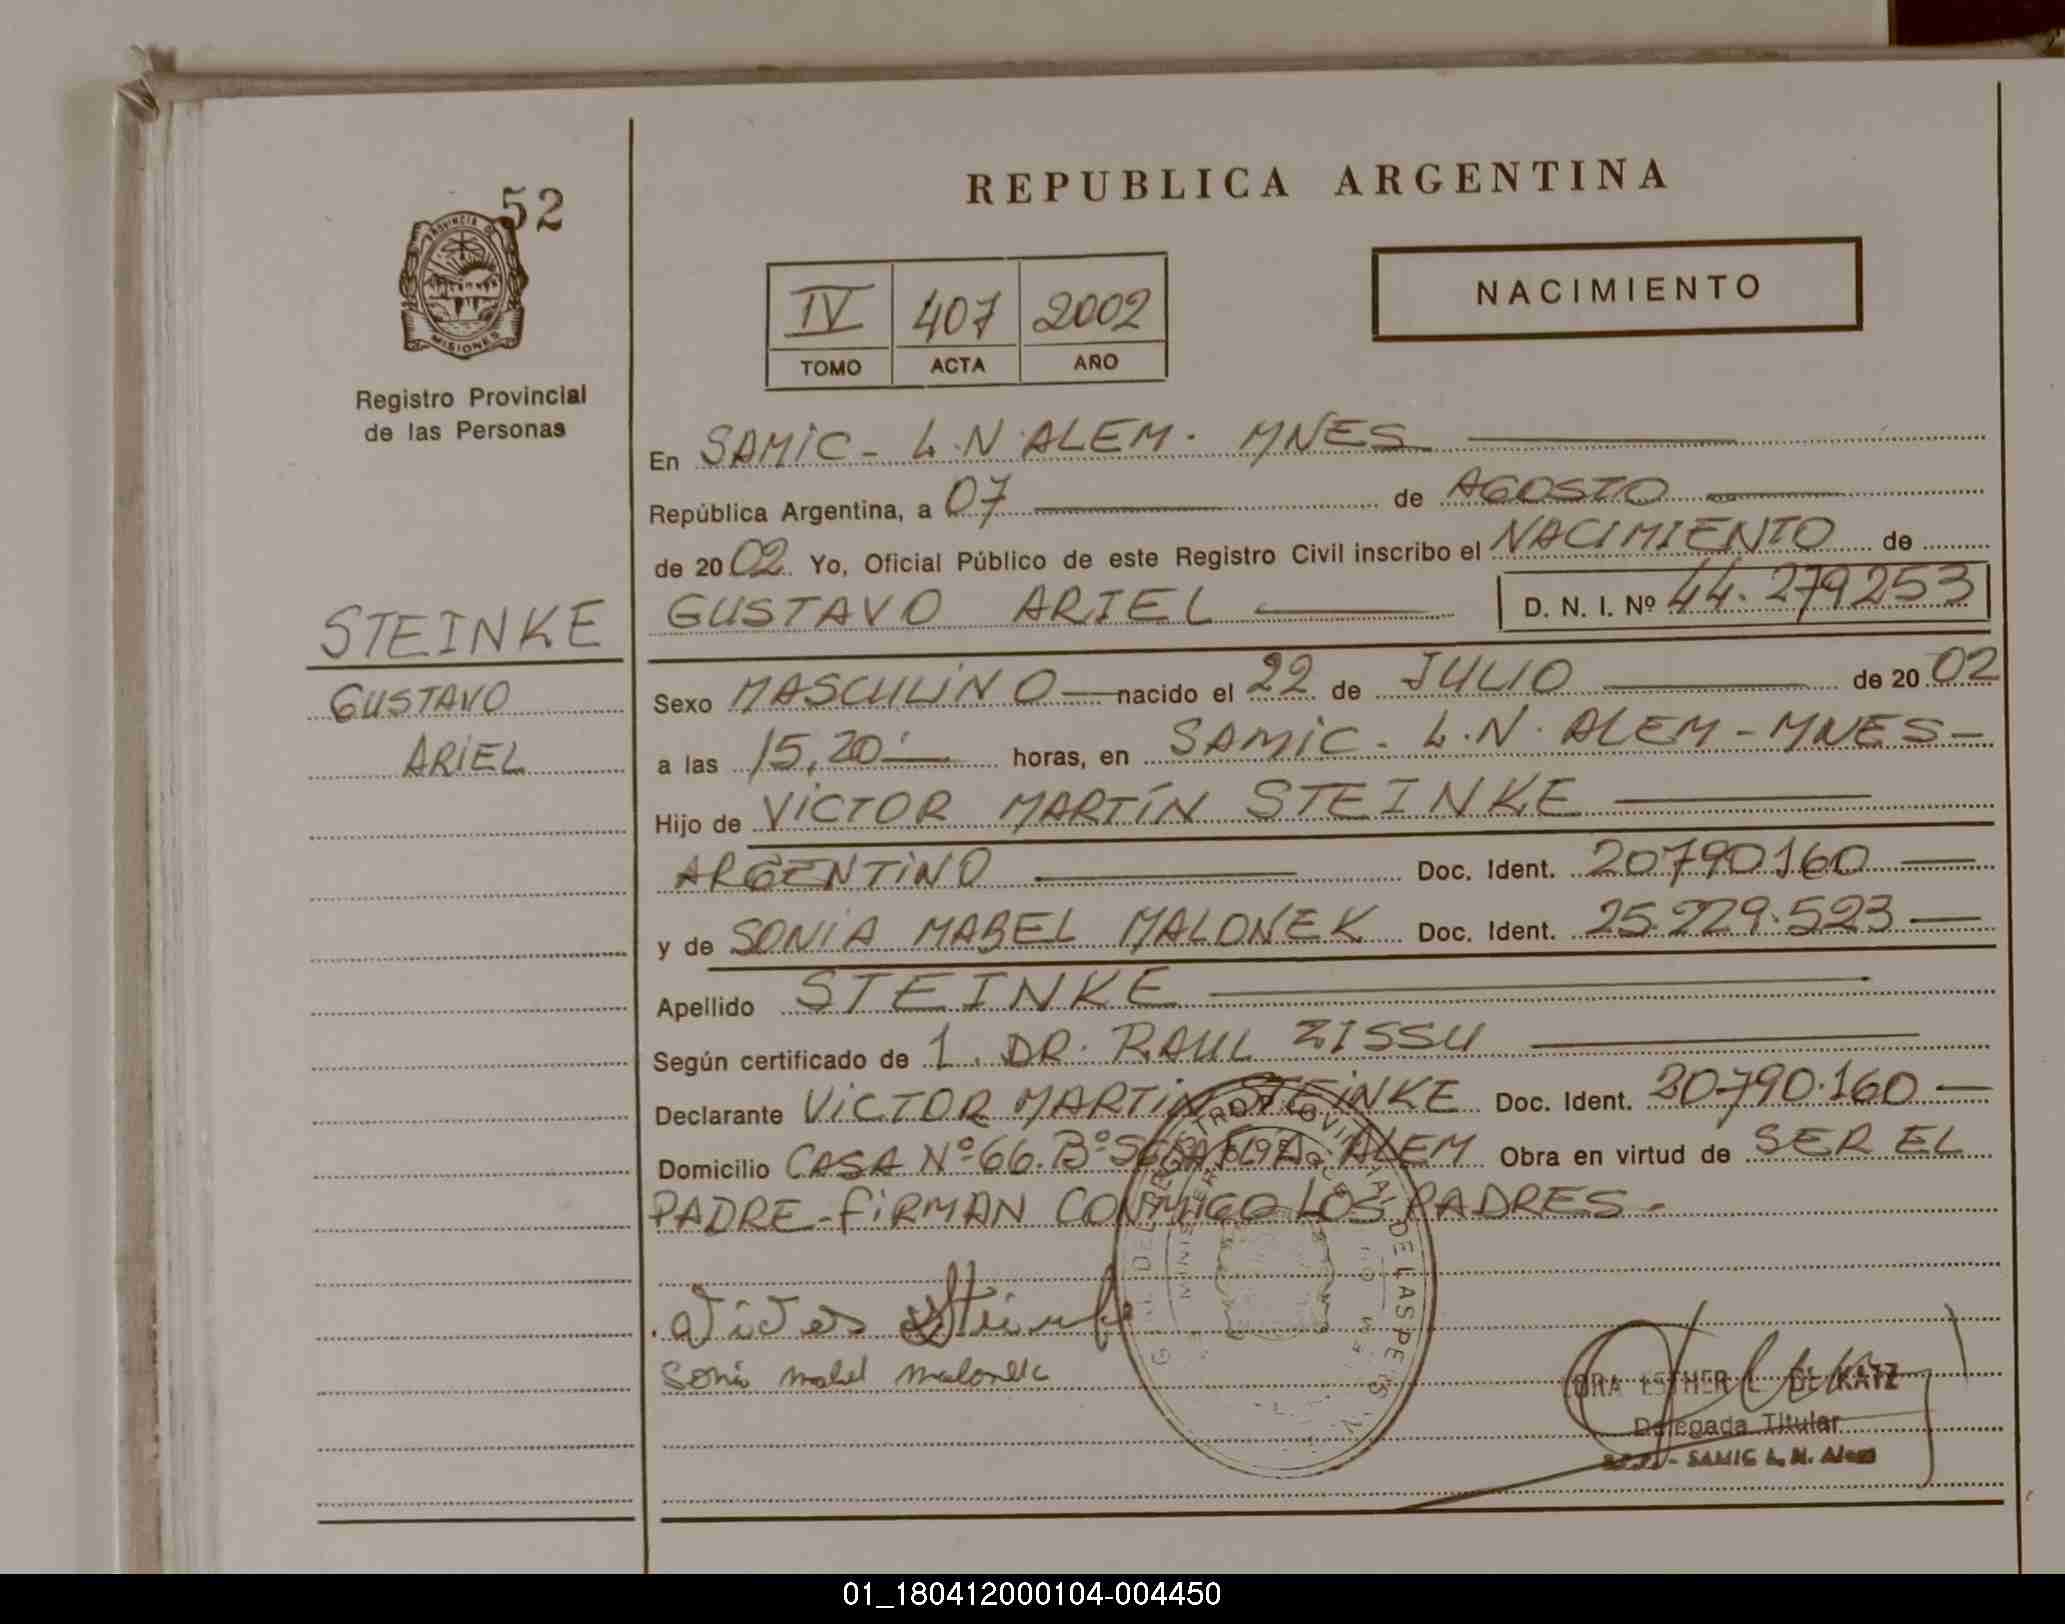 52
PROVINCIA DE
MISIONES
Registro Provincial
de las Personas
STEINKE
GUSTAVO
ARIEL
REPUBLICA ARGENTINA
IV 407 2002
TOMO ACTA AÑO
NACIMIENTO
En SAMIC - L.N. ALEM. MNES
República Argentina, a 07 de AGOSTO
de 2002. Yo, Oficial Público de este Registro Civil inscribo el NACIMIENTO de
GUSTAVO ARIEL D. N. I. Nº 44.279253
Sexo MASCULINO nacido el 22 de JULIO de 2002
a las 15,20' horas, en SAMIC - L.N. ALEM - MNES -
Hijo de VICTOR MARTÍN STEINKE
ARGENTINO Doc. Ident. 20790160
y de SONIA MABEL MALONEK Doc. Ident. 25.229.523
Apellido STEINKE
Según certificado de 1. DR. RAUL ZISSU
Declarante VICTOR MARTIN STEINKE Doc. Ident. 20790.160
Domicilio CASA Nº 66. Bº ALEM Obra en virtud de SER EL
PADRE - FIRMAN CONMIGO LOS PADRES -
Steinke
Sonia Mabel Malonek
DRA ESTHER L. DE KATZ
Delegada Titular
SAMIC L. N. Alem
01_180412000104-004450